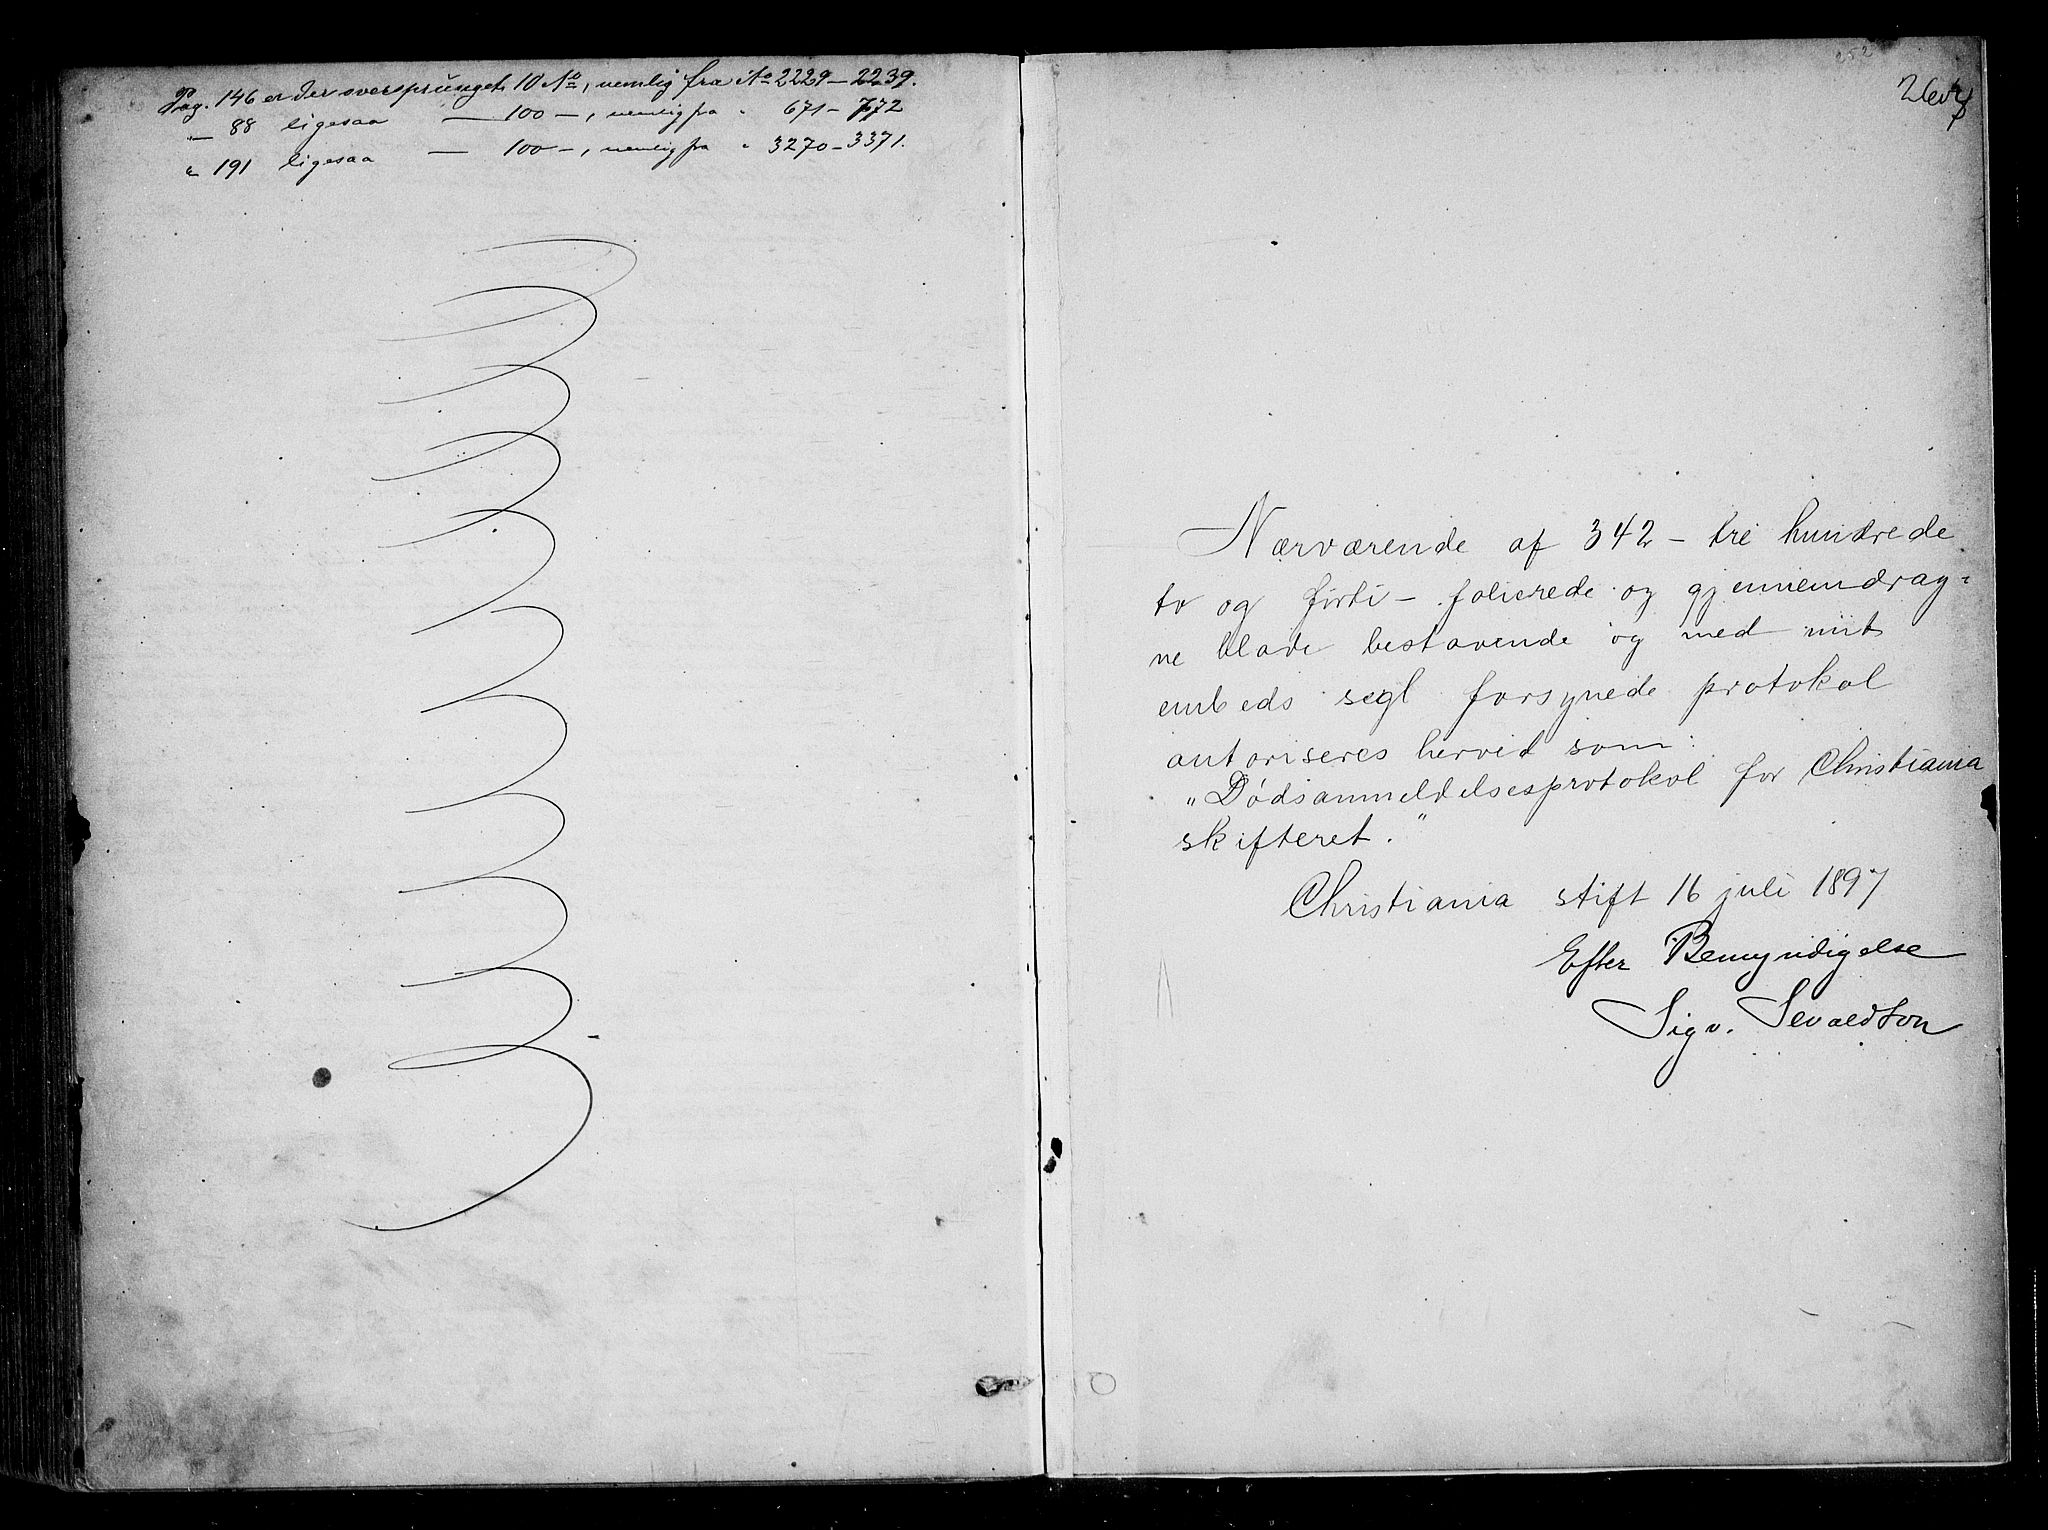 Pag. 146 er der oversprunget 10 No, nemlig fra No 2229 – 2239.
— 88 ligesaa — 100 —, nemlig fra „ 671 – 772
„ 191 ligesaa — 100 —, nemlig fra „ 3270 – 3371.
252
Nærværende af 342 – tre hundrede
to og firti – folierede og gjennemdrag-
ne blade bestaaende og med mit
embeds segl forsynede protokol
autoriseres herved som:
„Dødsanmeldelsesprotokol for Christiania
skifteret."
Christiania stift 16 juli 1897
Efter Bemyndigelse
Sigv. Sevaldson